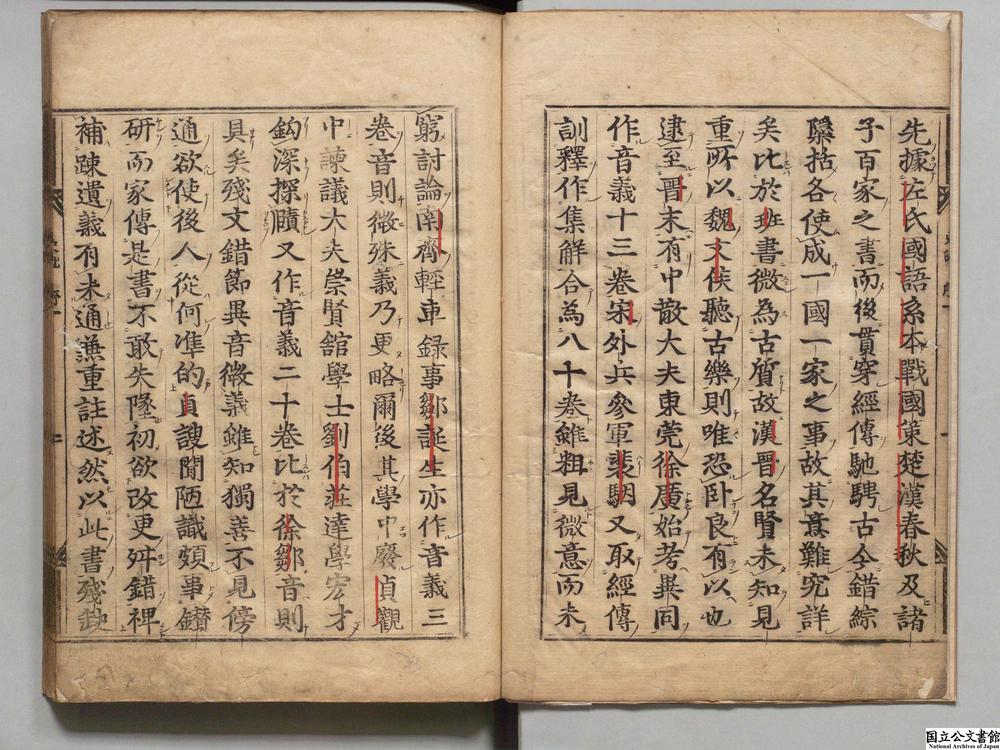 先據左氏國語系本戰國策楚漢春秋及諸
子百家之書而後貫穿經傳馳騁古今錯綜
隱括各使成一國一家之事故其意難究詳
矣比於班書微為古質故漢晉名賢未知見
重所以魏文侯聽古樂則唯恐卧良有以也
逮至晋末有中散大夫東莞徐廣始考異同
作音義十三卷宋外兵參軍裴駰又取經傳
訓釋作集解合為八十卷雖粗見微意而未
窮討論南齊輕車録事鄒誕生亦作音義三
卷音則微殊義乃更略爾後其學中廢貞觀
中諫議大夫崇賢舘學士劉伯莊達學宏才
鈎深探賾又作音義二十卷比於徐鄒音則
具矣殘文錯節異音微義雖知獨善不見傍
通欲使後人從何準的貞謏聞陋識頗事鑽
研而家傳是書不敢失墜初欲改更舛錯裨
補踈遺義有未通兼重註述然以此書殘缺
國立公文書館
National Archives of Japan